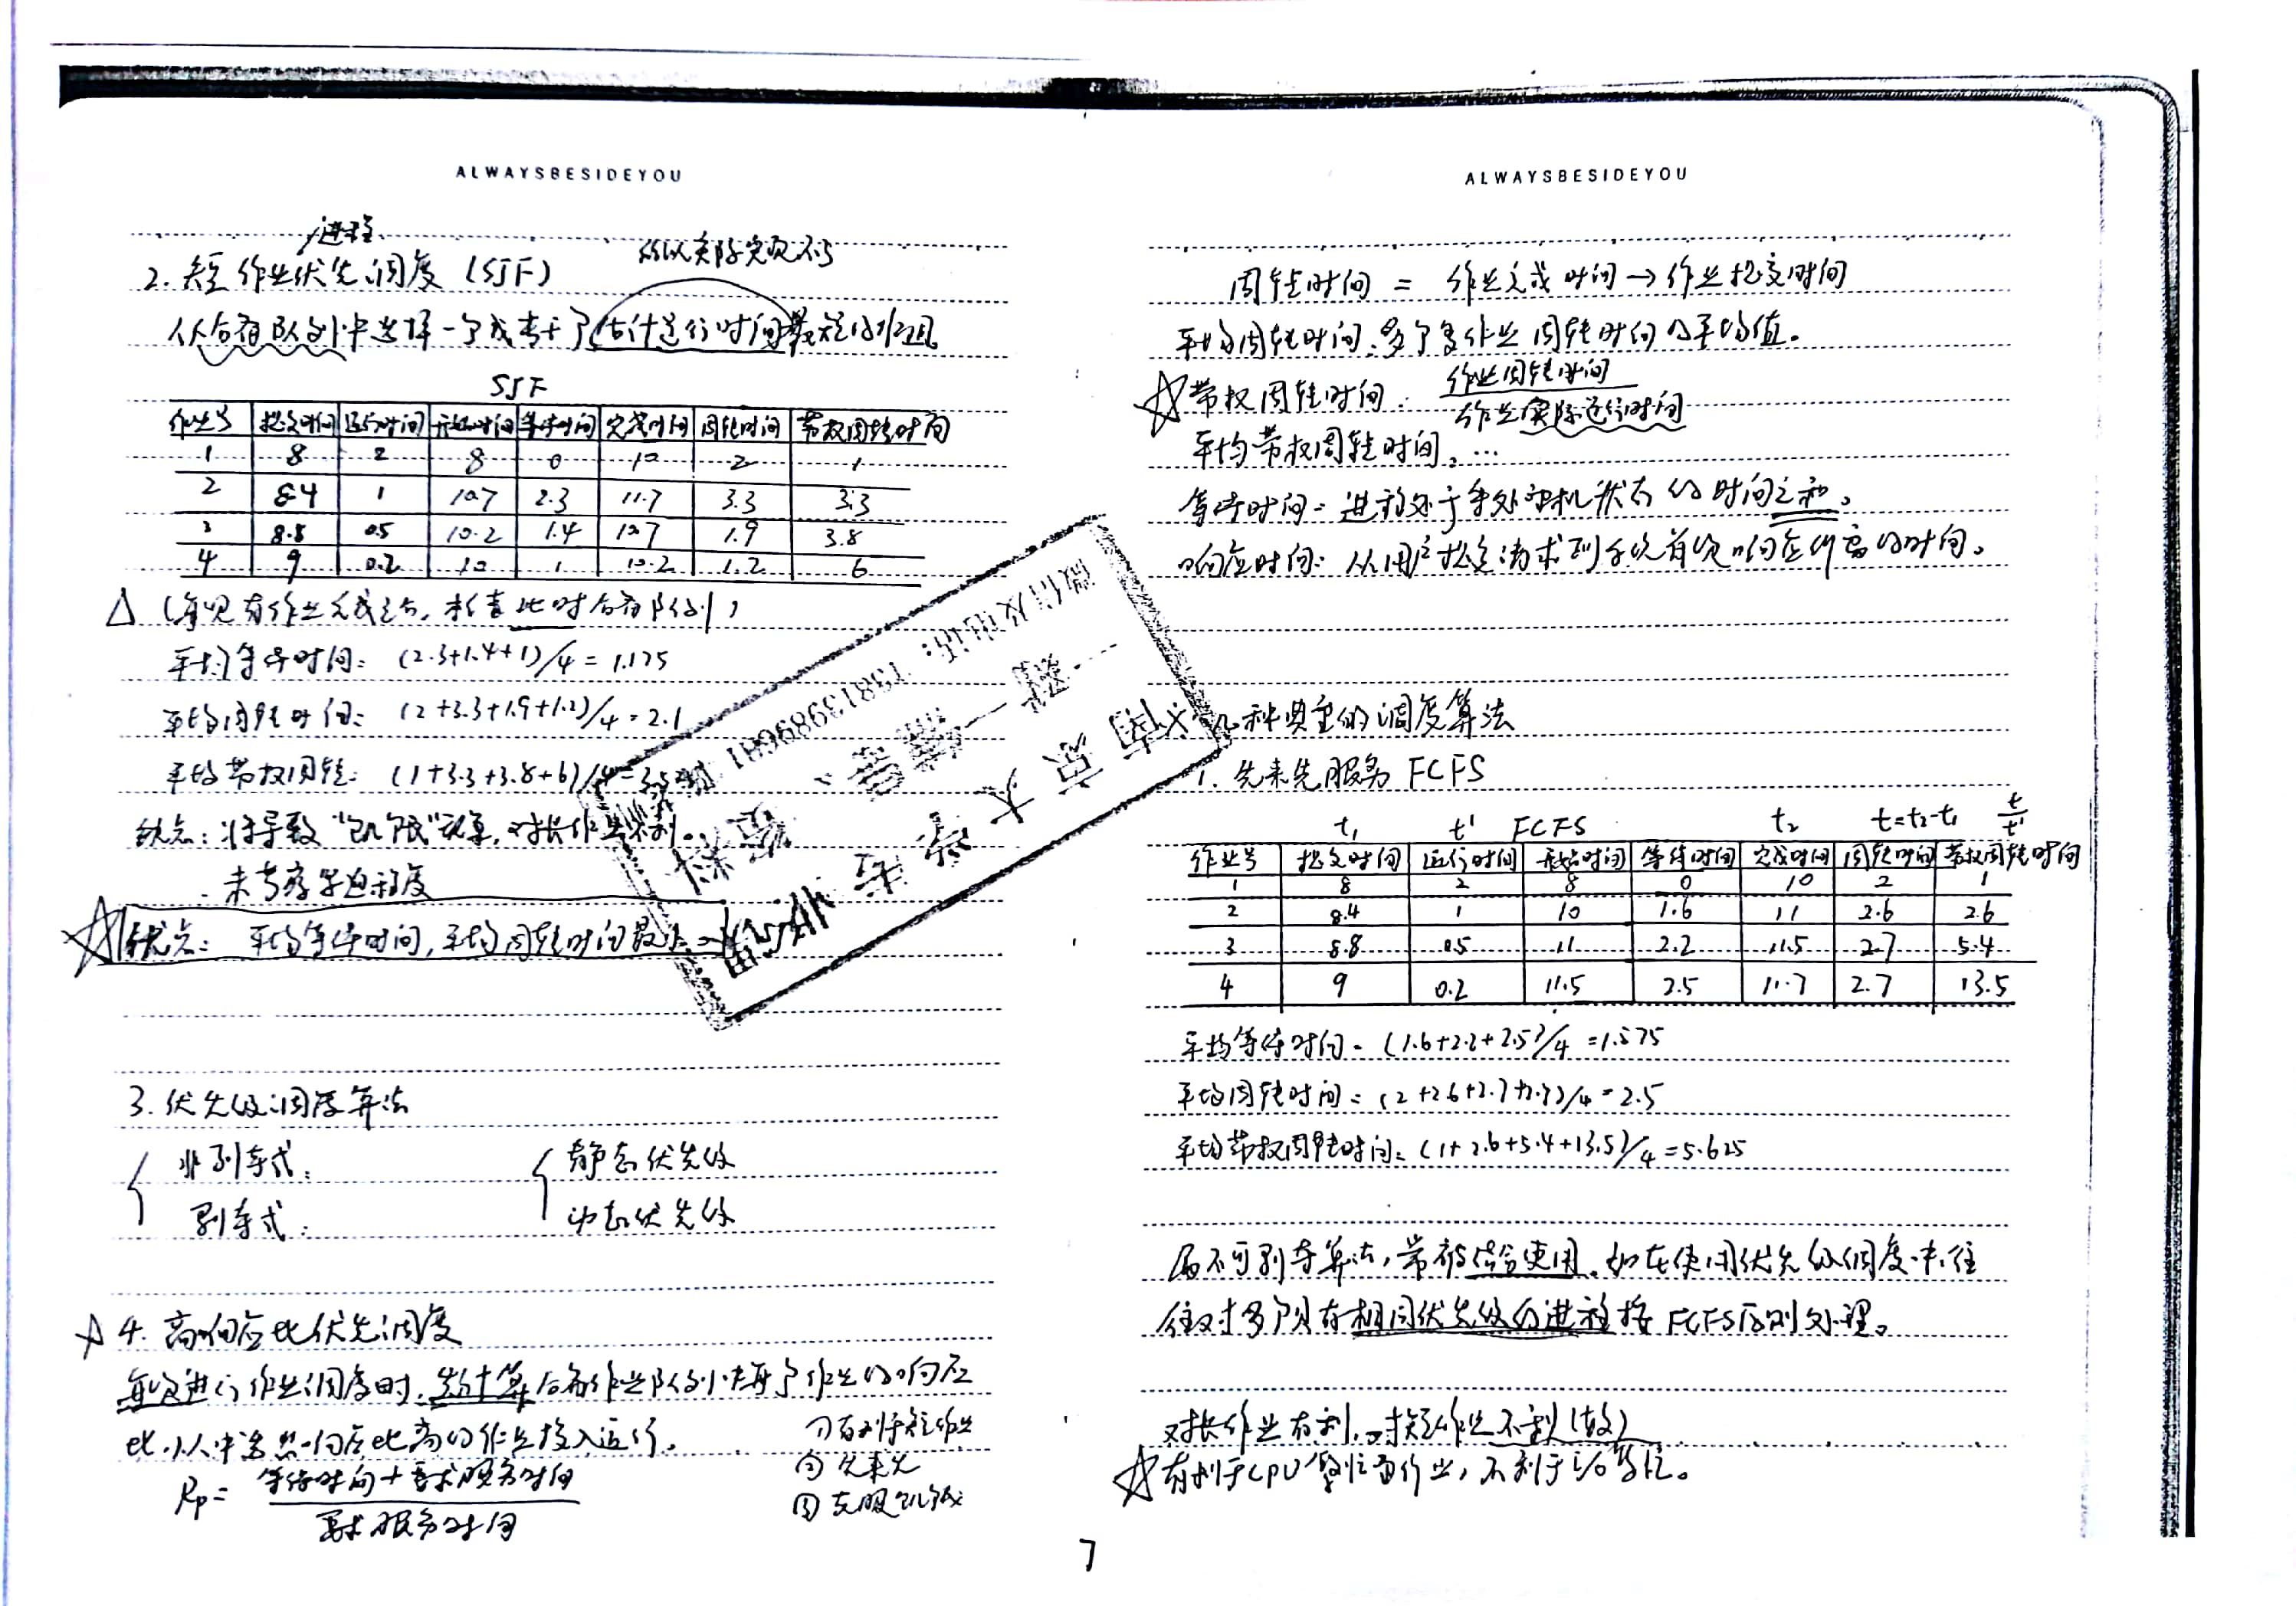 ALWAYSBESIDEYOU
进程
2. 短作业优先调度 (SJF)
从后备队列中选择一个或若干个估计运行时间最短的作业
SJF
作业号 提交时间 运行时间 开始时间 等待时间 完成时间 周转时间 带权周转时间
1 8 2 8 0 10 2 1
2 8.4 1 10.7 2.3 11.7 3.3 3.3
3 8.8 0.5 10.2 1.4 10.7 1.9 3.8
4 9 0.2 10 1 10.2 1.2 6
△ (每见有作业完成之后, 检查此时后备队列)
平均等待时间: (2.3+1.4+1)/4 = 1.175
平均周转时间: (2+3.3+1.9+1.2)/4 = 2.1
平均带权周转: (1+3.3+3.8+6)/4=
缺点: 将导致"饥饿"现象, 对长作业不利。
未考虑紧迫程度
☆优点: 平均等待时间, 平均周转时间最少
3. 优先级调度算法
非剥夺式:
剥夺式:
静态优先级
动态优先级
☆ 4. 高响应比优先调度
每次进行作业调度时, 先计算后备作业队列中每个作业的响应
比, 从中选出响应比高的作业投入运行。
①有利于短作业
② 先来先
③ 克服饥饿
Rp = 等待时间+要求服务时间
要求服务时间
ALWAYSBESIDEYOU
周转时间 = 作业完成时间 → 作业提交时间
平均周转时间: 多个多作业周转时间的平均值。
☆带权周转时间: 作业周转时间
作业实际运行时间
平均带权周转时间: …
等待时间: 进程处于等处理机状态的时间之和。
响应时间: 从用户提交请求到系统首次响应所需的时间。
几种典型的调度算法
1. 先来先服务 FCFS
t₁ t' FCFS t₂ t=t₂-t₁ t/t'
作业号 提交时间 运行时间 开始时间 等待时间 完成时间 周转时间 带权周转时间
1 8 2 8 0 10 2 1
2 8.4 1 10 1.6 11 2.6 2.6
3 8.8 0.5 11 2.2 11.5 2.7 5.4
4 9 0.2 11.5 2.5 11.7 2.7 13.5
平均等待时间 = (1.6+2.2+2.5)/4 = 1.575
平均周转时间 = (2+2.6+2.7+2.7)/4 = 2.5
平均带权周转时间: (1+2.6+5.4+13.5)/4 = 5.625
属不可剥夺算法, 常被结合使用, 如在使用优先级调度中, 往
往对多个具有相同优先级的进程按 FCFS原则处理。
对长作业有利, 对短作业不利(故)
☆有利于CPU繁忙型作业, 不利于I/O繁忙。
南京大学
微信及电话: 15813989681
7